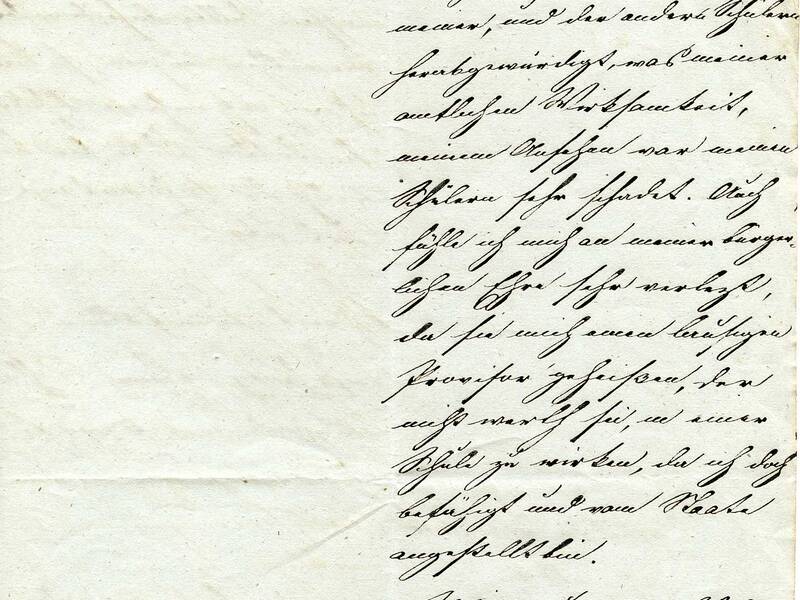 meiner, und der andern Schülern
herabgewürdigt, was meiner
amtlichen Wirksamkeit,
meinem Ansehen vor meinen
Schülern sehr schadet. Auch
fühle ich mich an meiner bürger-
lichen Ehre sehr verletzt,
da sie mich einen lausigen
Provisor geheißen, der
nicht werth sei, in einer
Schule zu wirken, da ich doch
befähigt und vom Staate
angestellt bin.